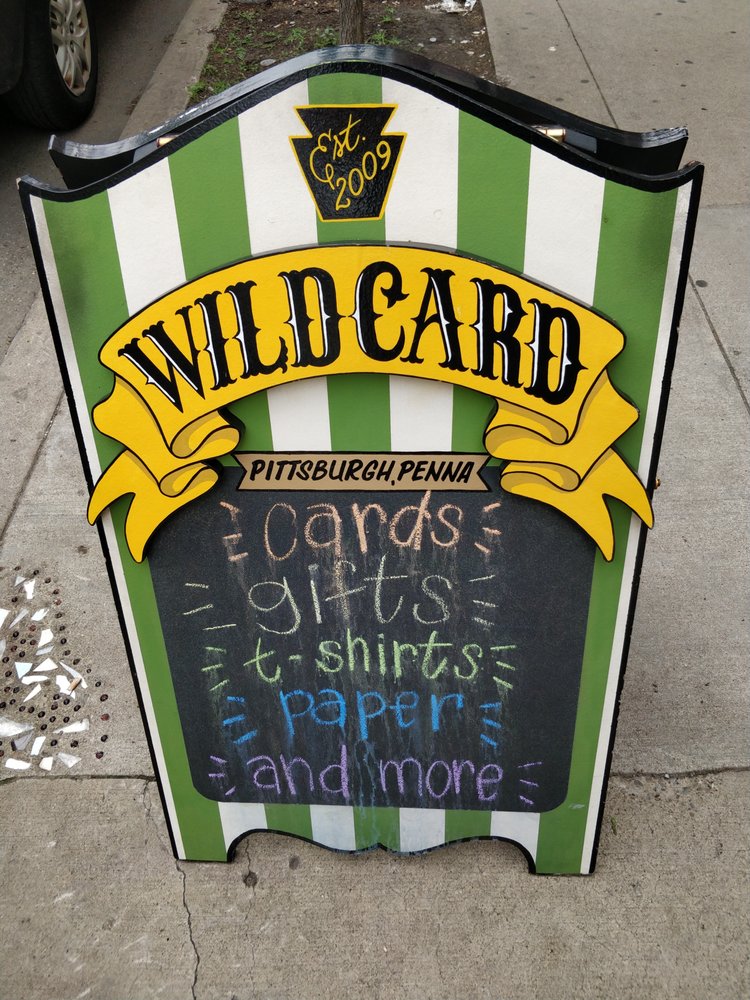 Est.
2009
WILDCARD
PITTSBURGH, PENNA
cards
gifts
t-shirts
paper
and more